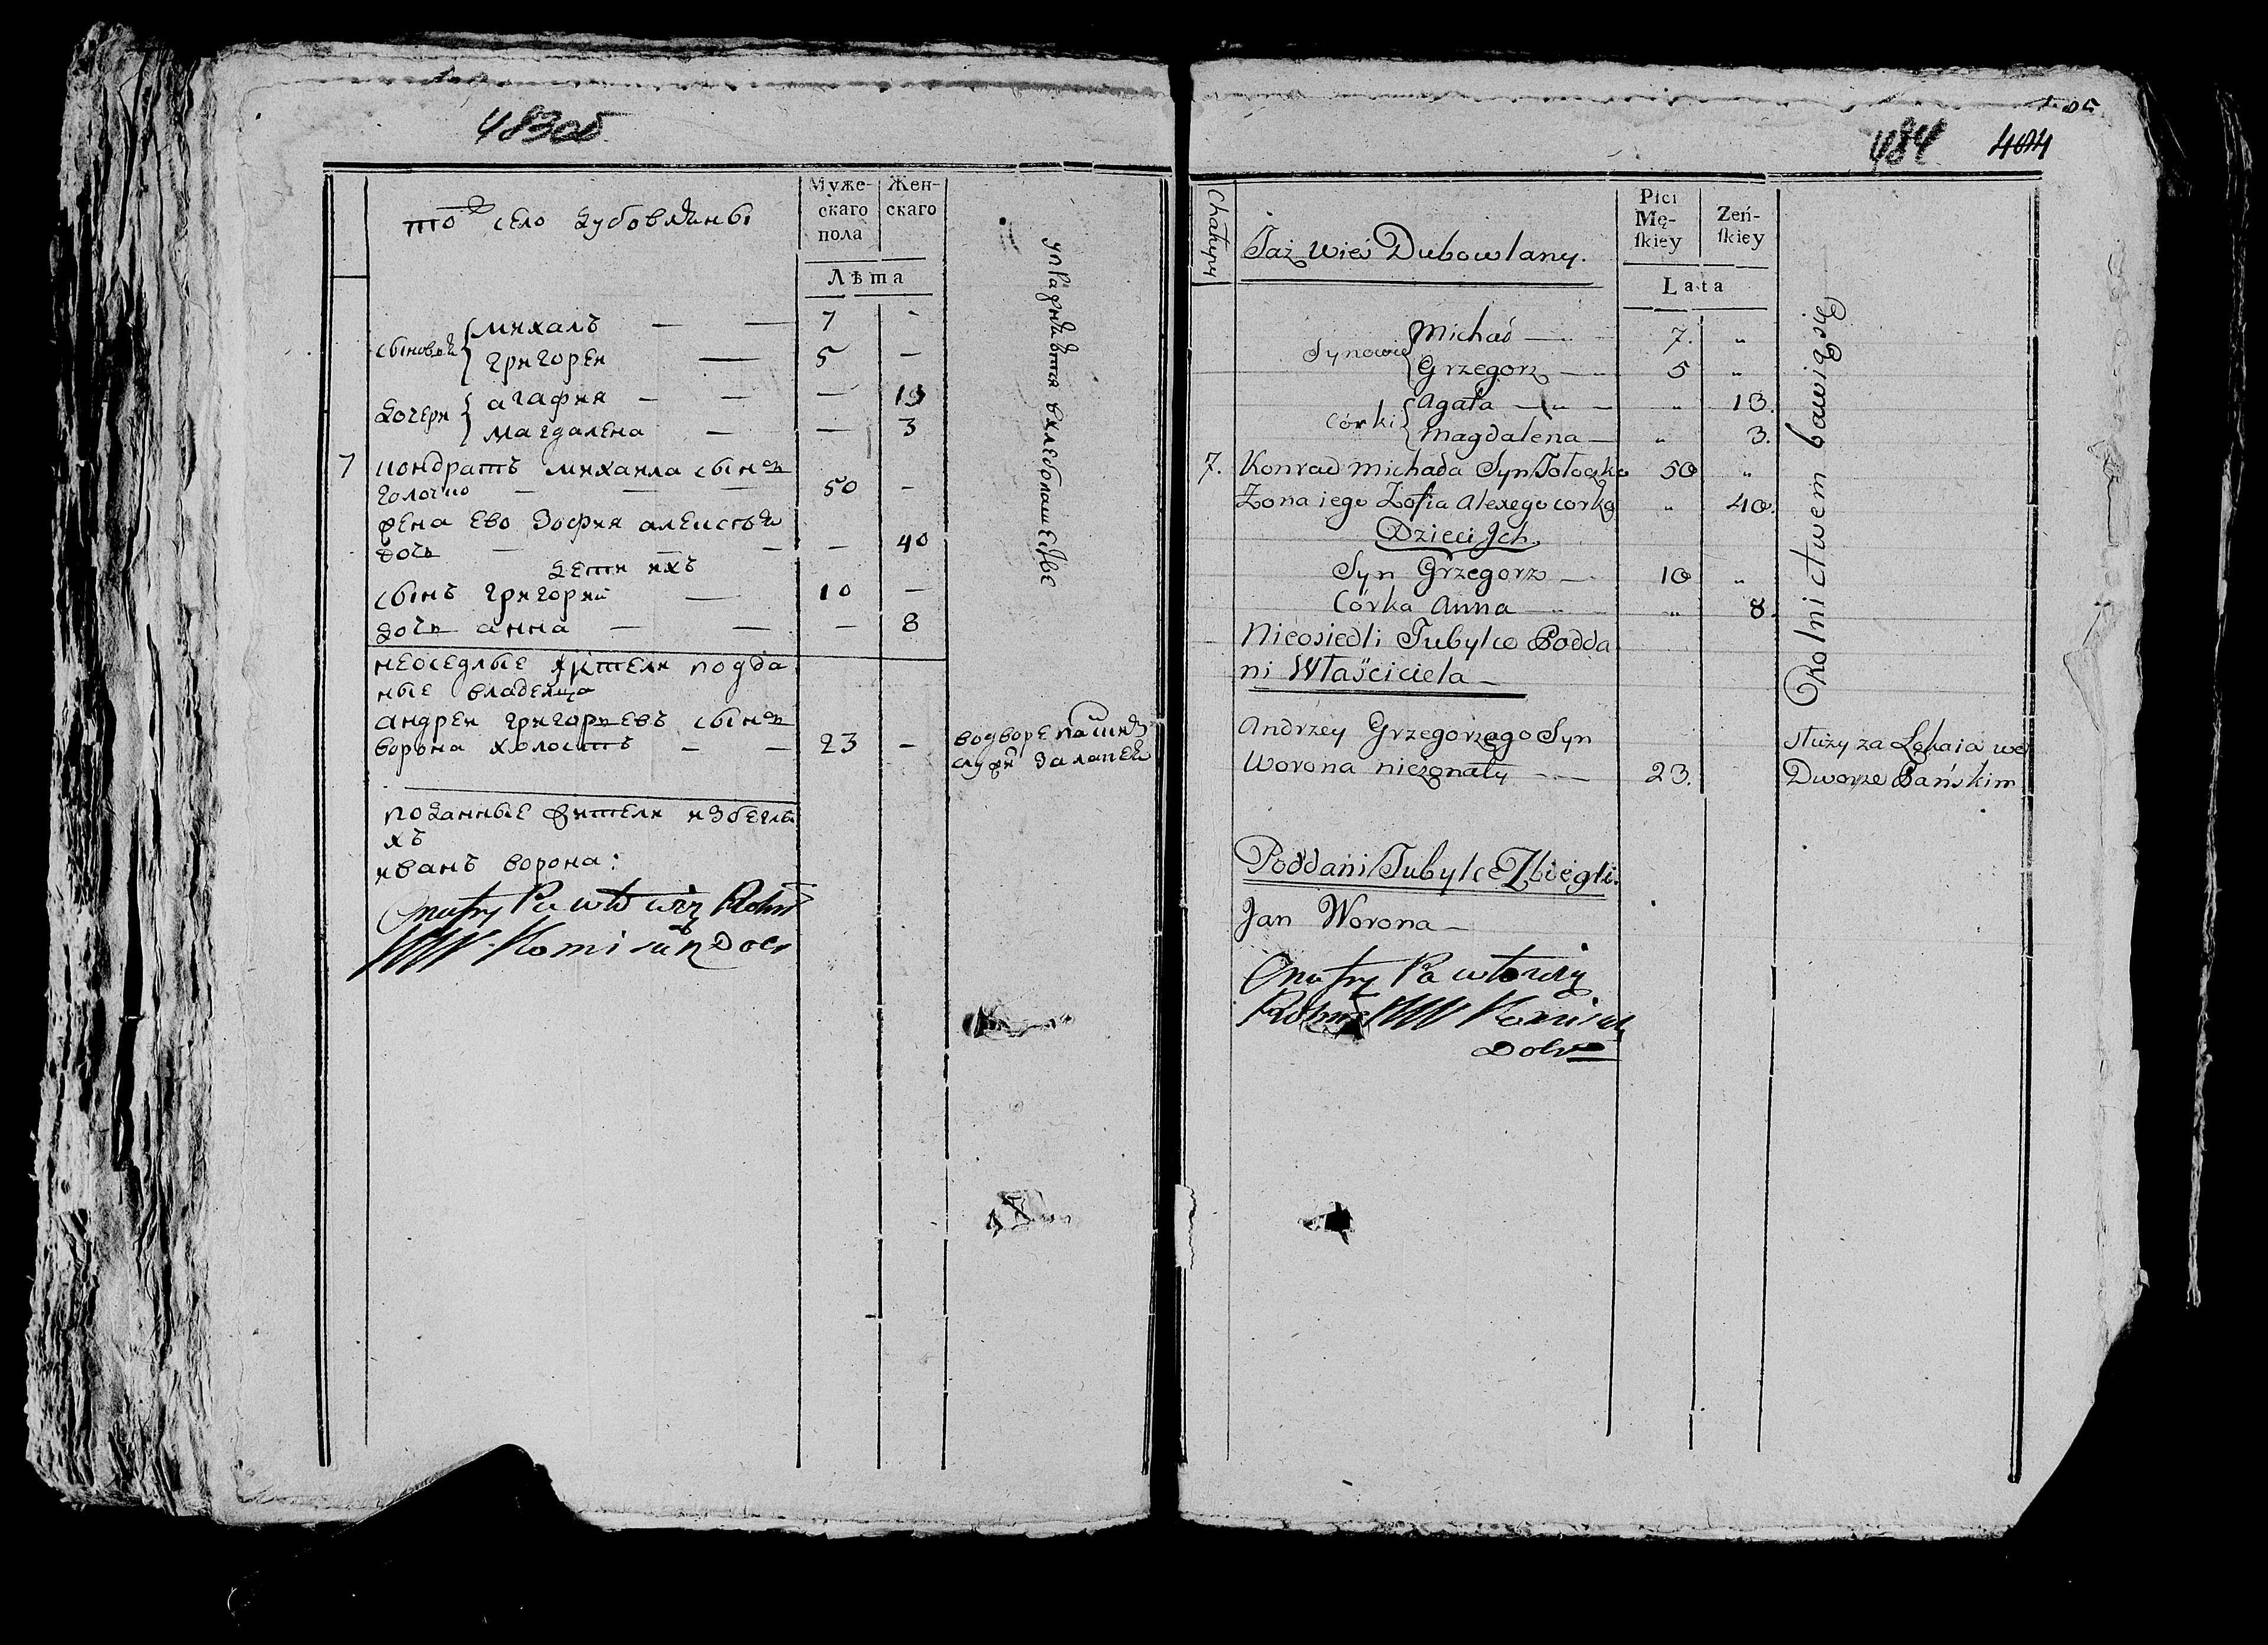 483об
то ж село Дубовляны
Муже-
скаго
пола
Жен-
скаго
Лѣта
сыновья михалъ — — 7 -
григорей — 5 —
дочери агафия — — — 13
магдалена — — 3
7 кондратъ михаила сынъ
толочко — — — 50 -
жена ево зофия алексѣя
дочь — — — — 40
дети ихъ
сынъ григорий — 10 —
дочь анна — — — 8
неоседлые жители подда
ные владельца
андрей григорьевъ сынъ
ворона холостъ — — 23 -
подданные жители избеглы
хъ
иванъ ворона:
Onufry Pawłowicz
упражняются в хлебопашестве
во дворе
служи за лакея
484 404
Chałupy
Taż Wieś Dubowlany.
Płci
Mę-
ſkiey
Zeń-
ſkiey
Lata
Synowie Michał — 7. "
Grzegorz — 5 "
Córki Agata — " — " 13.
Magdalena — " 3.
7. Konrad Michała Syn Tołoczko 50 "
Zona iego Zofia Alexego corka " 40.
Dzieci Jch.
Syn Grzegorz — 10 "
Córka Anna — " 8.
Nieosiedli Tubylce Podda
ni Właściciela —
Andrzey Grzegorzego Syn
Worona nieżonaty — 23.
Poddani Tubylce Zbiegli.
Jan Worona —
Onufry Pawłowicz
Rolnictwem bawią się
służy za Lokaia we
Dworze Pańskim